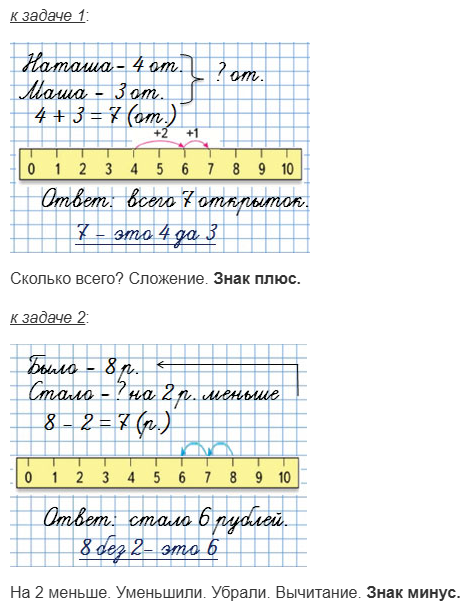 к задаче 1:
Наташа - 4 от.
Маша - 3 от.
? от.
4 + 3 = 7 (от.)
+2 +1
0 1 2 3 4 5 6 7 8 9 10
Ответ: всего 7 открыток.
7 - это 4 да 3
Сколько всего? Сложение. Знак плюс.
к задаче 2:
Было - 8 р.
Стало - ? на 2 р. меньше
8 - 2 = 7 (р.)
0 1 2 3 4 5 6 7 8 9 10
Ответ: стало 6 рублей.
8 без 2 - это 6
На 2 меньше. Уменьшили. Убрали. Вычитание. Знак минус.